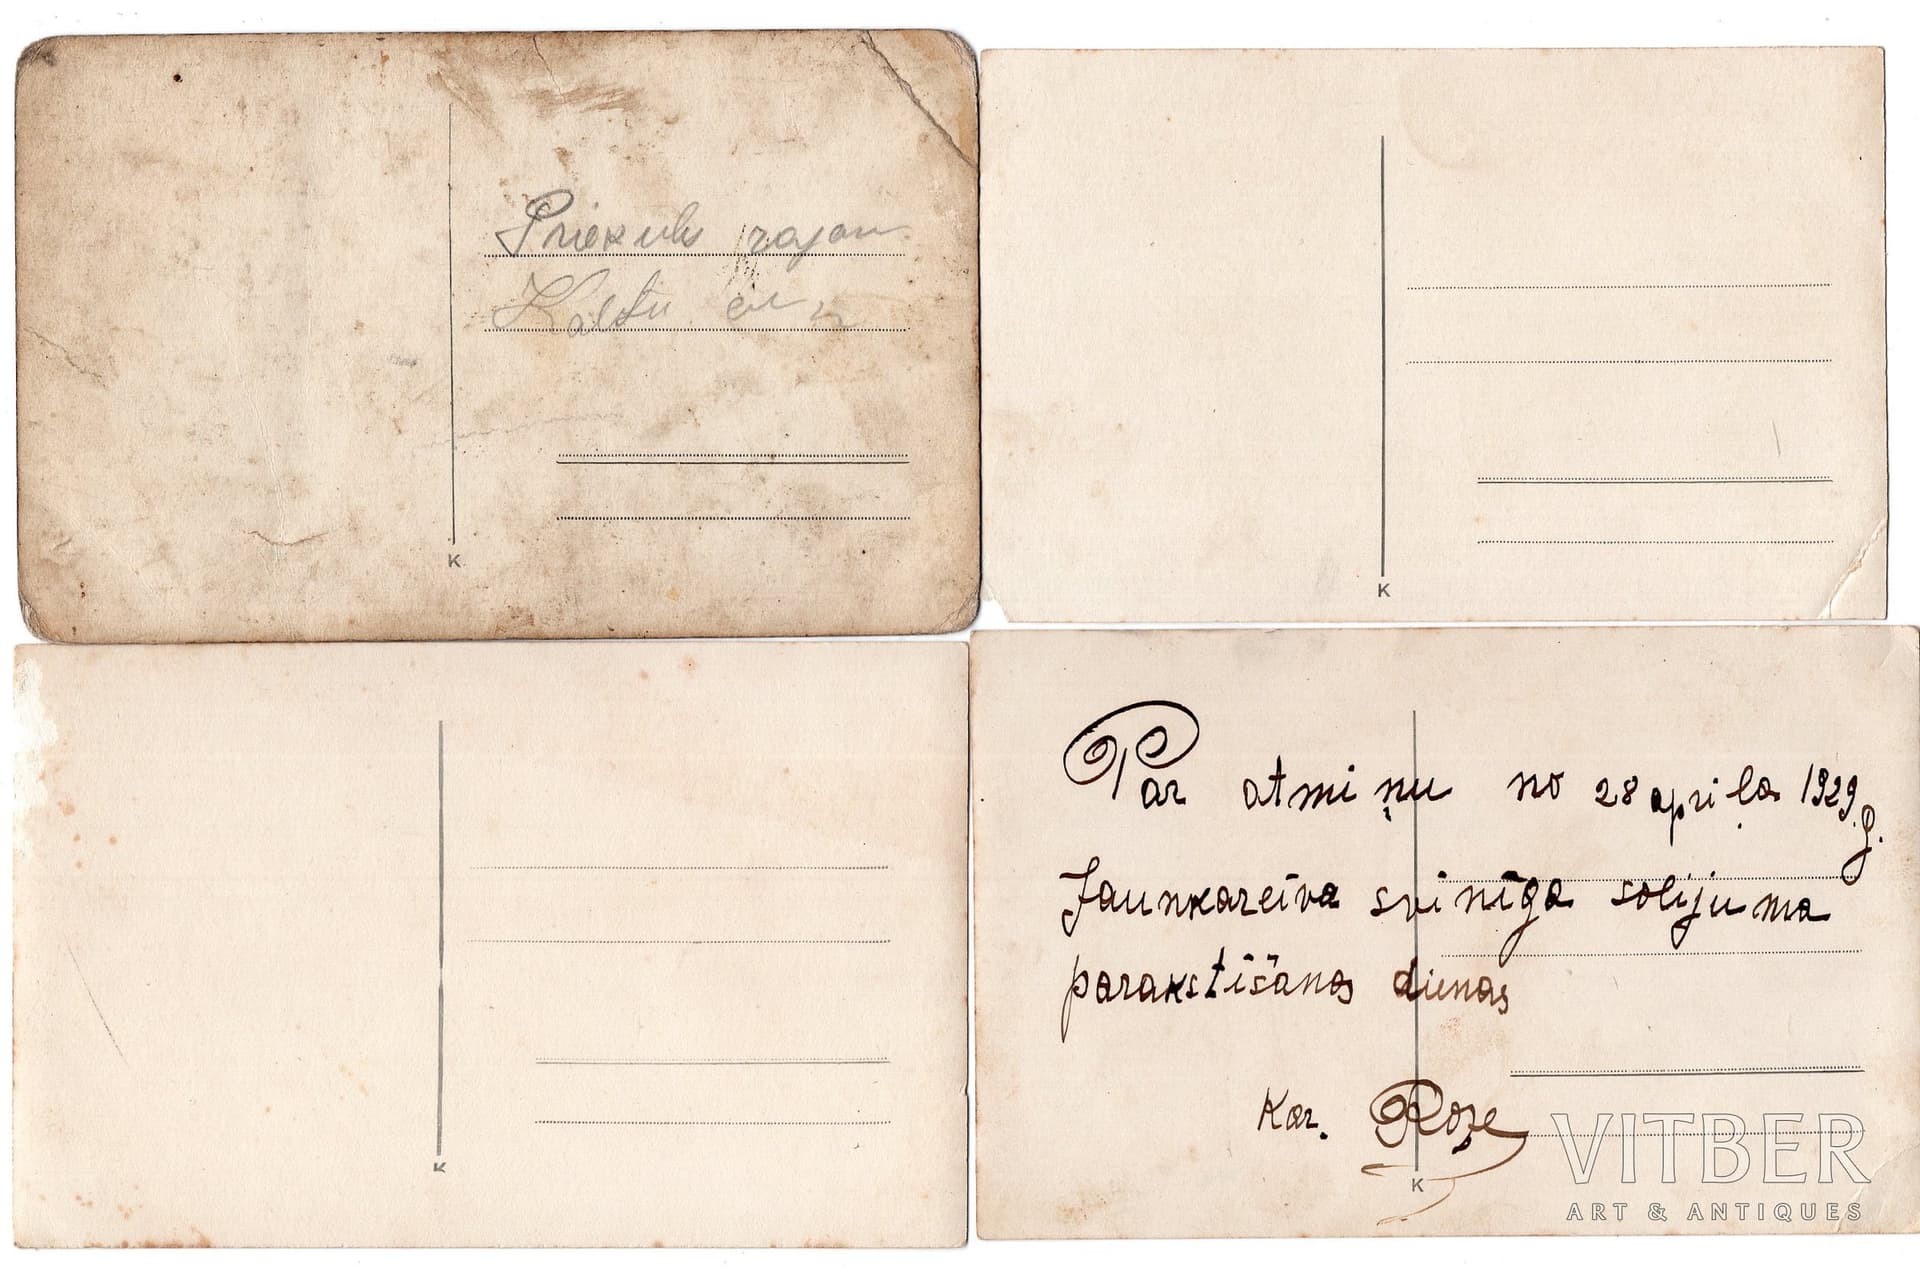 Priekuls rajon
Kaltu
K
K
K
Par atmiņu no 28 apriļa 1929 g.
Jaunkareiva svinīga solijuma
parakstīšanas dienas
Kar. Roze
K
VITBER
ART & ANTIQUES